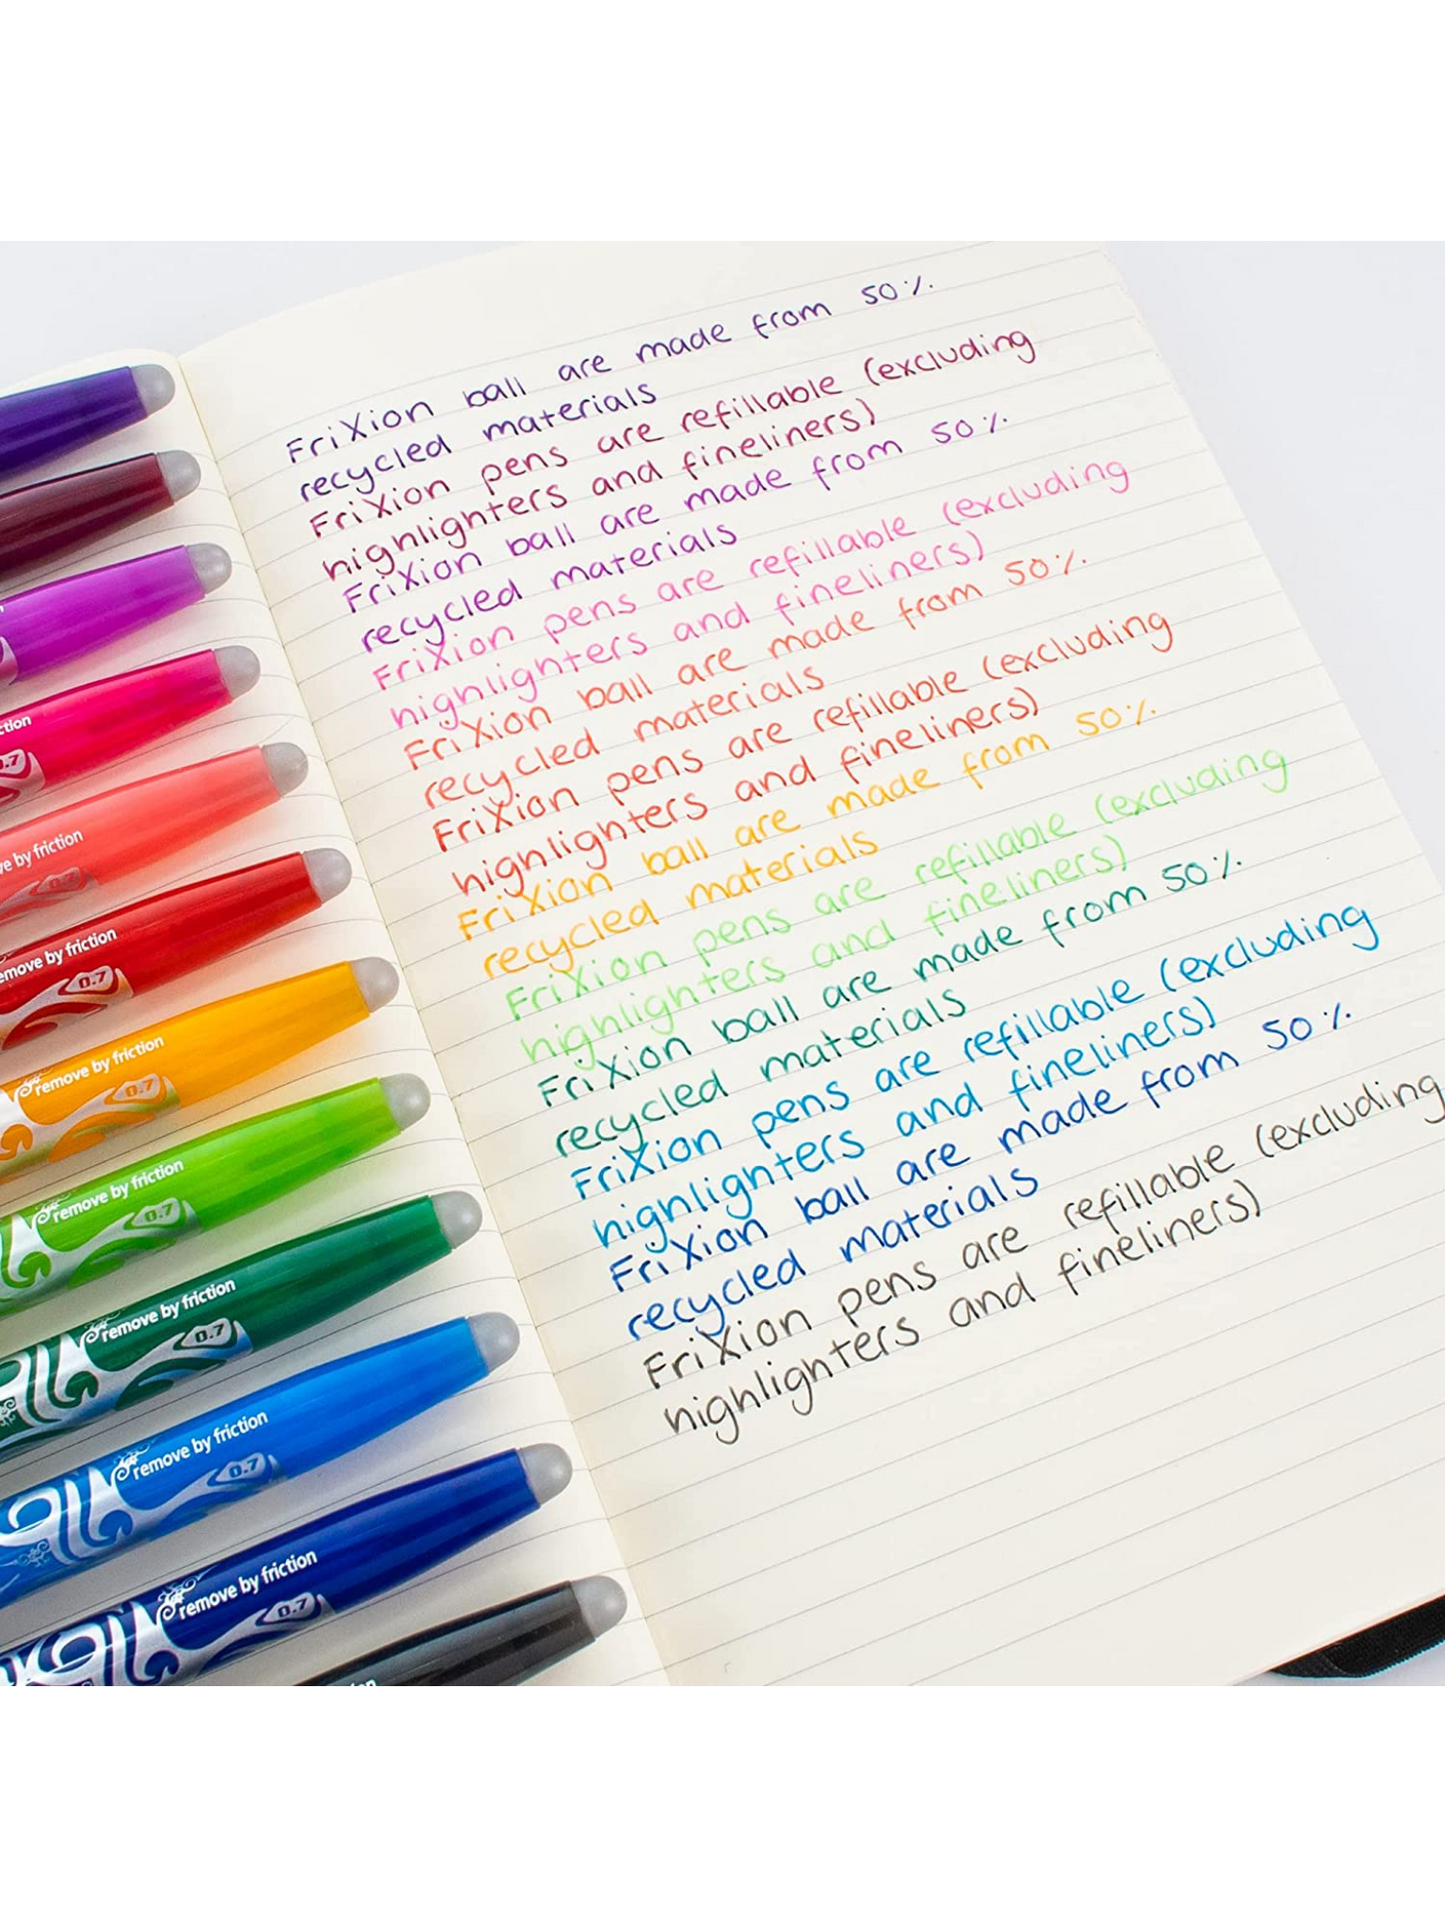 FriXion ball are made from 50%
recycled materials
FriXion pens are refillable (excluding
highlighters and fineliners)
FriXion ball are made from 50%
recycled materials
FriXion pens are refillable (excluding
highlighters and fineliners)
FriXion ball are made from 50%
recycled materials
FriXion pens are refillable (excluding
highlighters and fineliners)
FriXion ball are made from 50%
recycled materials
FriXion pens are refillable (excluding
highlighters and fineliners)
FriXion ball are made from 50%
recycled materials
FriXion pens are refillable (excluding
highlighters and fineliners)
FriXion ball are made from 50%
recycled materials
FriXion pens are refillable (excluding
highlighters and fineliners)
ction
0.7
ve by friction
0.7
emove by friction
0.7
remove by friction
0.7
remove by friction
0.7
remove by friction
0.7
remove by friction
0.7
remove by friction
0.7